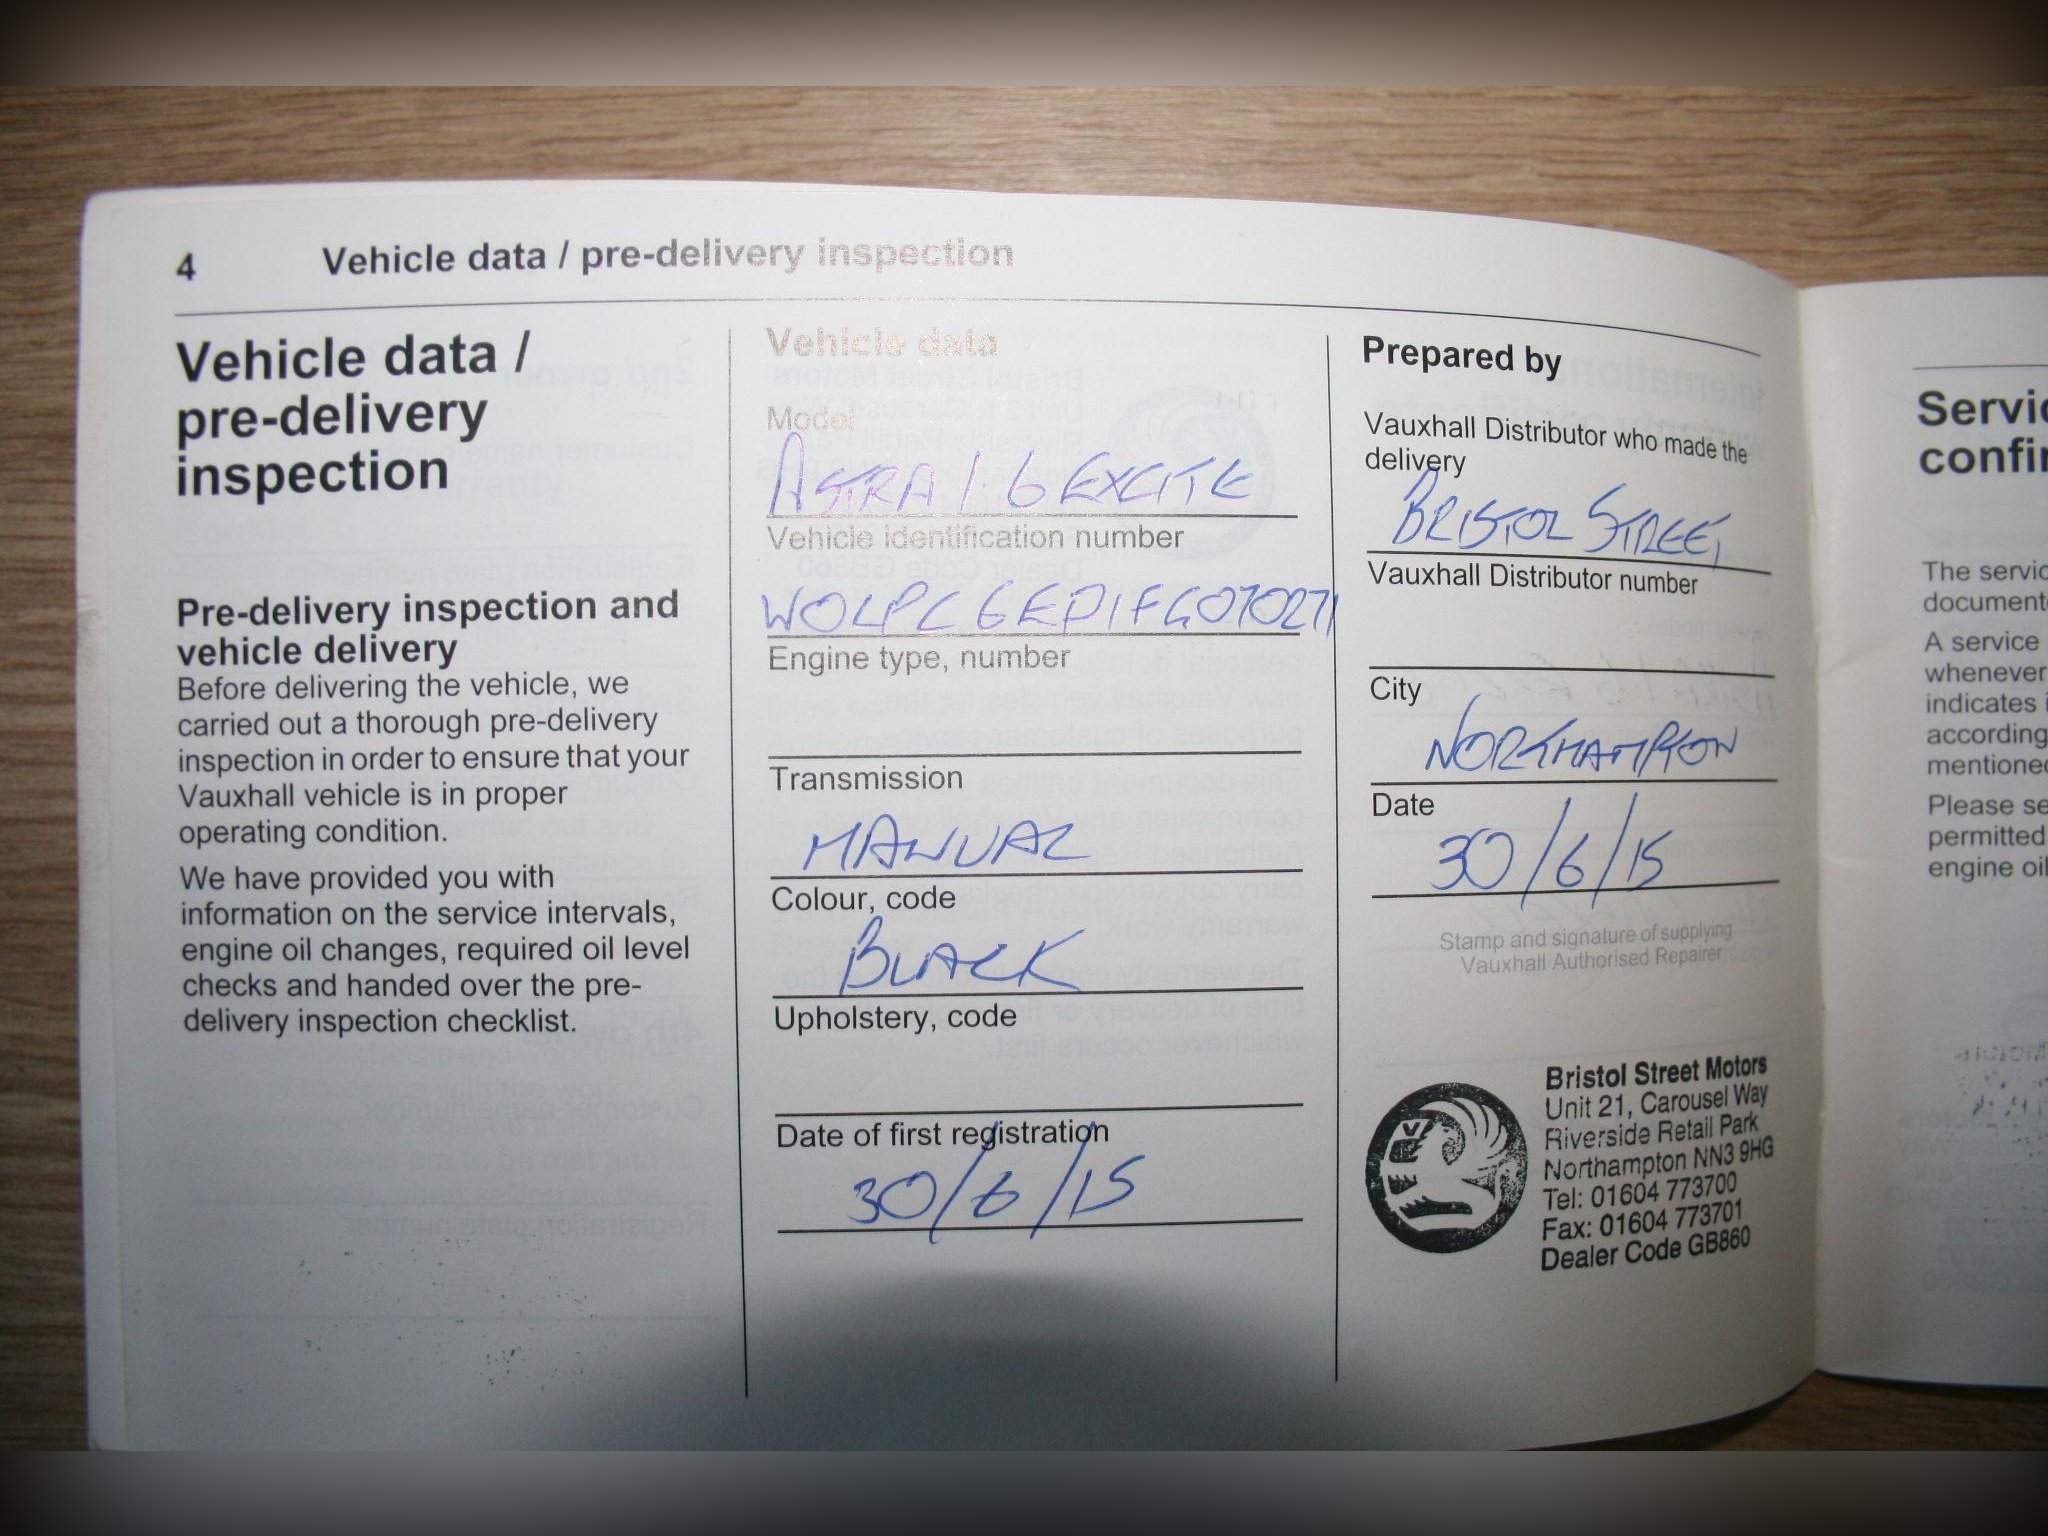 4 Vehicle data / pre-delivery inspection
Vehicle data /
pre-delivery
inspection
Pre-delivery inspection and
vehicle delivery
Before delivering the vehicle, we
carried out a thorough pre-delivery
inspection in order to ensure that your
Vauxhall vehicle is in proper
operating condition.
We have provided you with
information on the service intervals,
engine oil changes, required oil level
checks and handed over the pre-
delivery inspection checklist.
Vehicle data
Model
ASTRA 1.6 EXCITE
Vehicle identification number
WOLPC6ED1FG070271
Engine type, number
Transmission
MANUAL
Colour, code
BLACK
Upholstery, code
Date of first registration
30/6/15
Prepared by
Vauxhall Distributor who made the
delivery
BRISTOL STREET
Vauxhall Distributor number
City
NORTHAMPTON
Date
30/6/15
Stamp and signature of supplying
Vauxhall Authorised Repairer
Bristol Street Motors
Unit 21, Carousel Way
Riverside Retail Park
Northampton NN3 9HG
Tel: 01604 773700
Fax: 01604 773701
Dealer Code GB860
Servic
confir
The servic
document
A service
whenever
indicates i
according
mentioned
Please se
permitted
engine oil